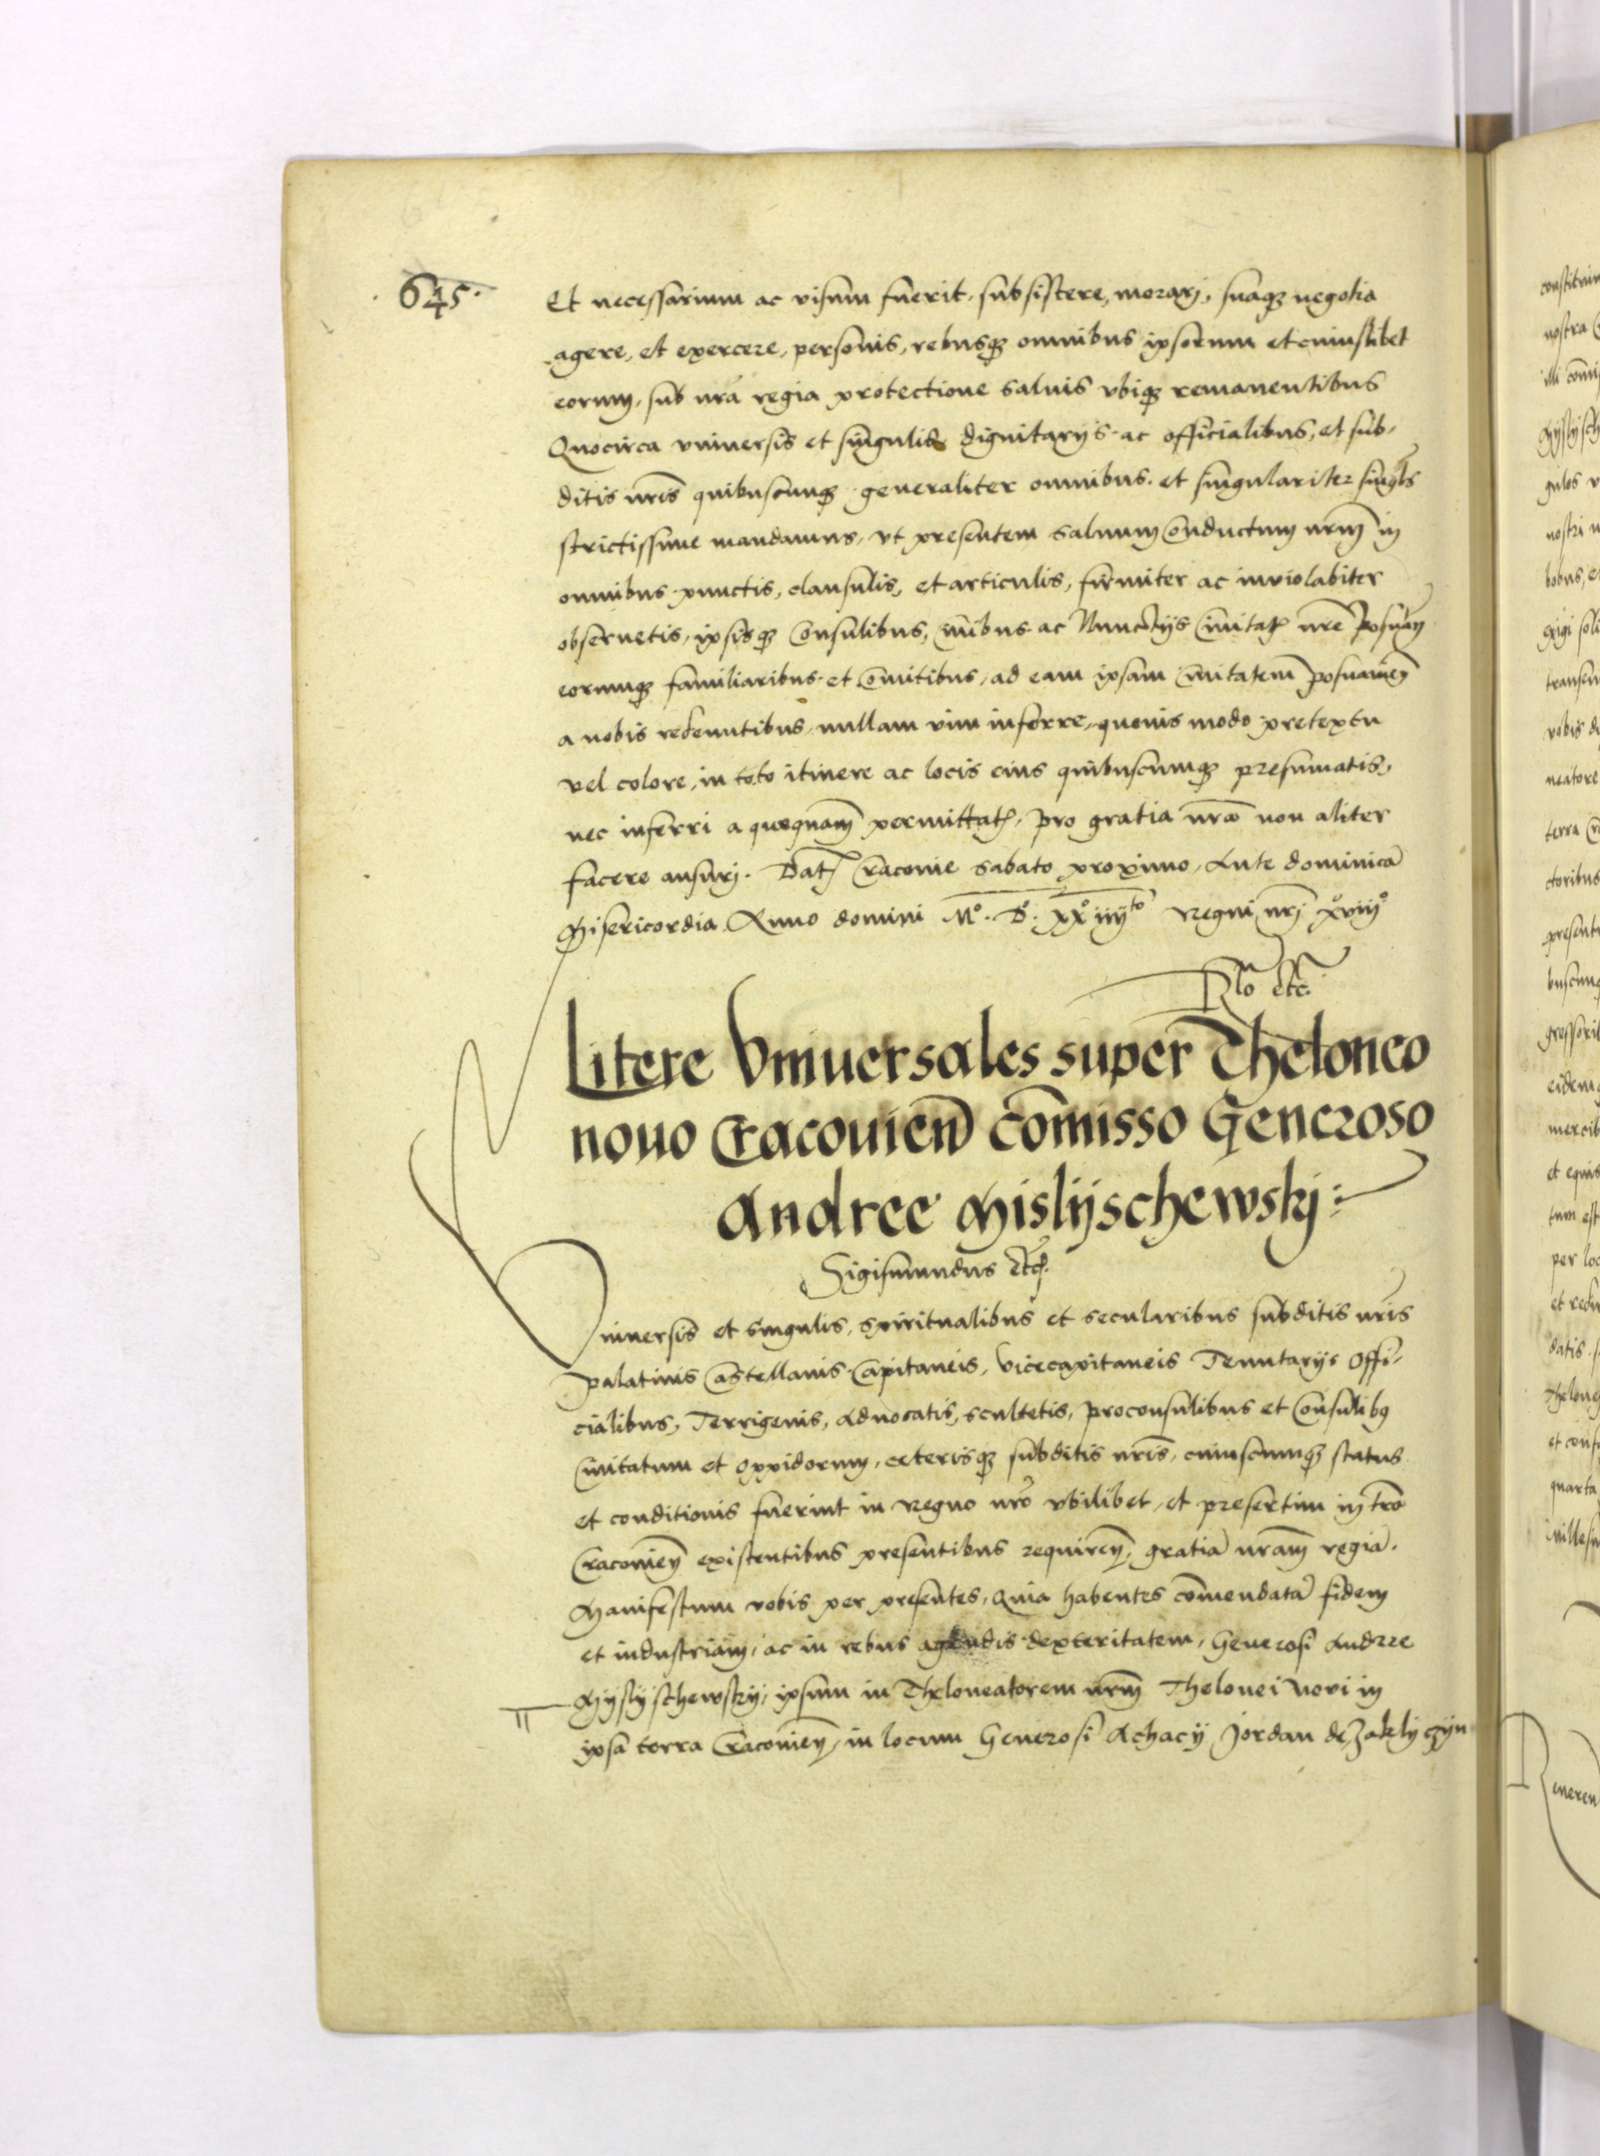 645.
Et necessarium ac visum fuerit, subsistere, morarj, suaqȝ negotia
agere, et exercere, personis, rebusqȝ omnibus ipsorum et cuiuslibet
eorum, sub nr̃a regia protectione saluis vbiqȝ remanentibus
Quocirca vniuersis et singulis dignitarijs ac officialibus, et sub-
ditis nr̃is quibuscunqȝ generaliter omnibus et singulariter singl̃is
strictissime mandamus, vt presentem saluum conductum nr̃m in
omnibus punctis, clausulis, et articulis, firmiter ac inuiolabiter
obseruetis, ipsisqȝ Consulibus, Ciuibus ac Nuncijs Ciuitat̃ nr̃e Posnan̄
eorumqȝ familiaribus et Comitibus, ad eam ipsam Ciuitatem Posnanien̄
a nobis redeuntibus nullam vim inferre, quouis modo pretextu
vel colore, in toto itinere ac locis eius quibuscumqȝ presumatis,
nec inferri a quoquam̄ permittat̃, pro gratia nr̃a non aliter
facere ausurj. Dat̃ Cracouie sabato proximo Ante dominicā
Misericordia Anno domini Mº. Dº. XXº iiijto Regni nr̃j xºviijº
Rl̃o etc̃.
Litere Vniuersales super Theloneo
nouo Cracouien̄ Cōmisso Generoso
Andree Mislijschewskj:
Sigismundus etc̃.
Vniuersis et singulis, spiritualibus et secularibus subditis nr̃is
palatinis Castellanis Capitaneis, vicecapitaneis Tenutarijs Offi-
cialibus, Terrigenis, Aduocatis, scultetis, proconsulibus et Consulibꝰ
Ciuitatum et Oppidorum, ceterisqȝ subditis nr̃is, cuiuscunqȝ status
et conditionis fuerint in Regno nr̃o vbilibet, et presertim in tr̃a
Cracouien̄ existentibus presentibus requiren̄, gratiā nr̃am regiā.
Manifestum vobis per presentes, Quia habentes cōmendatā fidem
et industriam, ac in rebus agendis dexteritatem, Generosi Andree
Myslyschewsky, ipsum in Theloneatorem nr̃m Thelonei noui in
ipsa terra Cracouien̄, in locum Generosi Achacij Jordan de Zaklyczyn